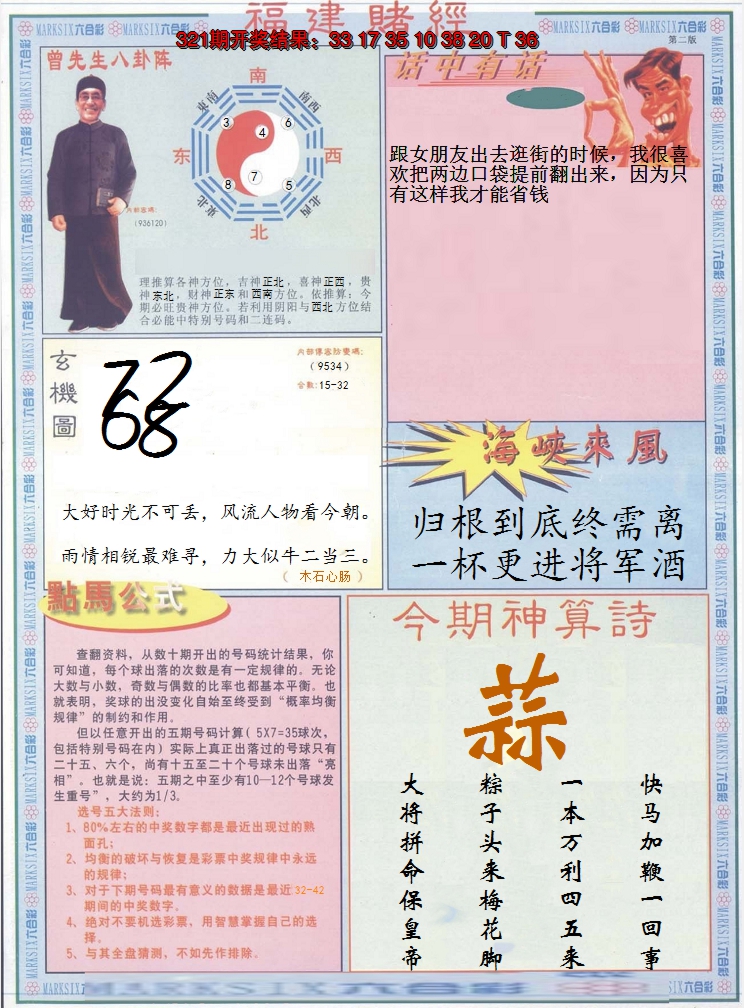 福建賭經
321期开奖结果：33 17 35 10 38 20 T 36
第二版
MARKSIX六合彩
曾先生八卦阵
南
東南
南西
3
4
6
东
西
8
7
5
東北
北西
北
(936120)
理推算各神方位，吉神正北，喜神正西，贵
神东北，财神正东和西南方位。依推算：今
期必旺贵神方位。若利用阴阳与西北方位结
合必能中特别号码和二连码。
话中有话
跟女朋友出去逛街的时候，我很喜
欢把两边口袋提前翻出来，因为只
有这样我才能省钱
玄機圖
（9534）
合数:15-32
68
大好时光不可丢，风流人物看今朝。
雨情相锐最难寻，力大似牛二当三。
（ 木石心肠 ）
海峡來風
归根到底终需离
一杯更进将军酒
點馬公式
查翻资料，从数十期开出的号码统计结果，你
可知道，每个球出落的次数是有一定规律的。无论
大数与小数，奇数与偶数的比率也都基本平衡。也
就表明，奖球的出没变化自始至终受到“概率均衡
规律”的制约和作用。
但以任意开出的五期号码计算( 5X7=35球次，
包括特别号码在内) 实际上真正出落过的号球只有
二十五、六个，尚有十五至二十个号球未出落“亮
相”。也就是说：五期之中至少有10—12个号球发
生重号”，大约为1/3。
选号五大法则：
1、80%左右的中奖数字都是最近出现过的熟
面孔；
2、均衡的破坏与恢复是彩票中奖规律中永远
的规律；
3、对于下期号码最有意义的数据是最近32-42
期间的中奖数字。
4、绝对不要机选彩票，用智慧掌握自己的选
择。
5、与其全盘猜测，不如先作排除。
今期神算詩
蒜
快马加鞭一回事
一本万利四五来
粽子头来梅花脚
大将拼命保皇帝